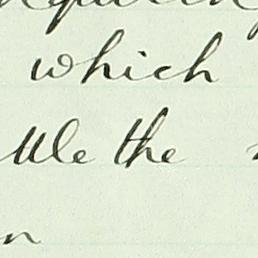 which
ttle the
n